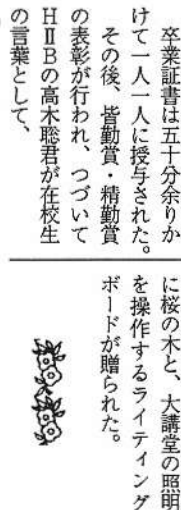 卒業証書は五十分余りか
けて一人一人に授与された。
　その後、皆勤賞・精勤賞
の表彰が行われ、つづいて
HⅡBの高木聡君が在校生
の言葉として、
に桜の木と、大講堂の照明
を操作するライティング
ボードが贈られた。